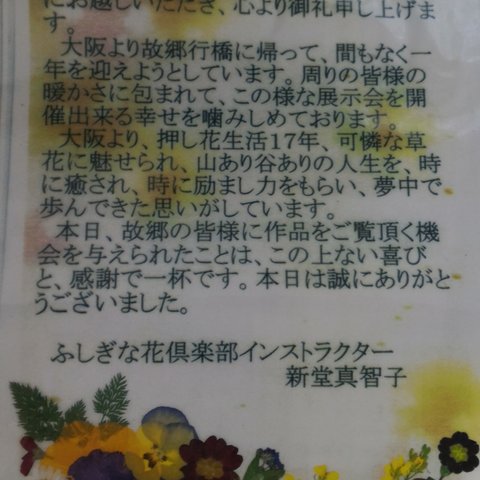 にお越しいただき、心より御礼申し上げま
す。
大阪より故郷行橋に帰って、間もなく一
年を迎えようとしています。周りの皆様の
暖かさに包まれて、この様な展示会を開
催出来る幸せを噛みしめております。
大阪より、押し花生活17年、可憐な草
花に魅せられ、山あり谷ありの人生を、時
に癒され、時に励まし力をもらい、夢中で
歩んできた思いがしています。
本日、故郷の皆様に作品をご覧頂く機
会を与えられたことは、この上ない喜び
と、感謝で一杯です。本日は誠にありがと
うございました。
ふしぎな花倶楽部インストラクター
新堂真智子